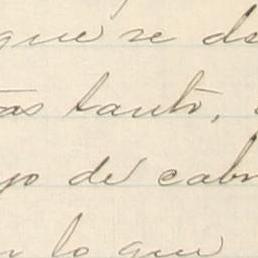 que se de
as tanto,
jo de cabr
lo que